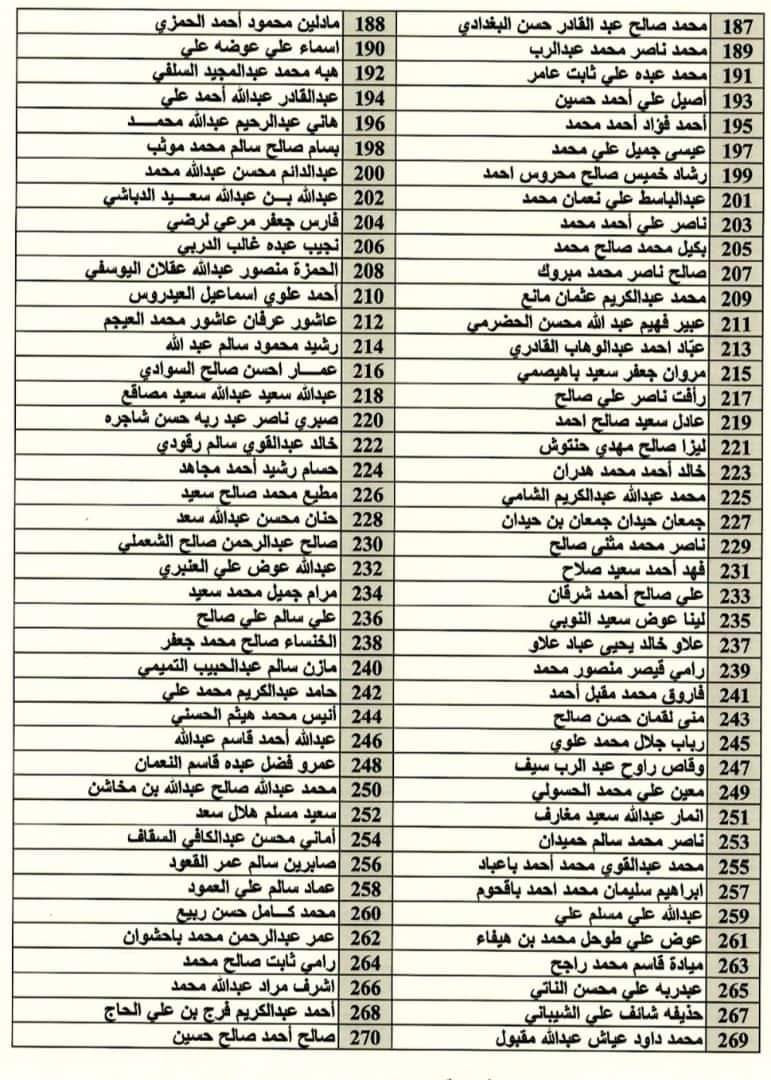 187 محمد صالح عبد القادر حسن البغدادي 188 مادلين محمود أحمد الحمزي
189 محمد ناصر محمد عبدالرب 190 اسماء علي عوضه علي
191 محمد عبده علي ثابت عامر 192 هبه محمد عبدالمجيد السلفي
193 أصيل علي أحمد حسين 194 عبدالقادر عبدالله أحمد علي
195 أحمد فؤاد أحمد محمد 196 هاني عبدالرحيم عبدالله محمــــد
197 عيسى جميل علي محمد 198 بسام صالح سالم محمد موثب
199 رشاد خميس صالح محروس احمد 200 عبدالدائم محسن عبدالله محمد
201 عبدالباسط علي نعمان محمد 202 عبدالله بــن عبدالله سعــيد الدباشي
203 ناصر علي أحمد محمد 204 فارس جعفر مرعي لرضي
205 بكيل محمد صالح محمد 206 نجيب عبده غالب الدربي
207 صالح ناصر محمد مبروك 208 الحمزة منصور عبدالله عقلان اليوسفي
209 محمد عبدالكريم عثمان مانع 210 أحمد علوي اسماعيل العيدروس
211 عبير فهيم عبد الله محسن الحضرمي 212 عاشور عرفان عاشور محمد العيجم
213 عبّاد احمد عبدالوهاب القادري 214 رشيد محمود سالم عبد الله
215 مروان جعفر سعيد باهيصمي 216 عمـــار احسن صالح السوادي
217 رأفت ناصر علي صالح 218 عبدالله سعيد عبدالله سعيد مصاقع
219 عادل سعيد صالح احمد 220 صبري ناصر عبد ربه حسن شاجره
221 ليزا صالح مهدي حنتوش 222 خالد عبدالقوي سالم رقودي
223 خالد أحمد محمد هدران 224 حسام رشيد أحمد مجاهد
225 محمد عبدالله عبدالكريم الشامي 226 مطيع محمد صالح سعيد
227 جمعان حيدان جمعان بن حيدان 228 حنان محسن عبدالله سعد
229 ناصر محمد مثنى صالح 230 صالح عبدالرحمن صالح الشعملي
231 فهد أحمد سعيد صلاح 232 عبدالله عوض علي العنبري
233 علي صالح أحمد شرقان 234 مرام جميل محمد سعيد
235 لينا عوض سعيد النوبي 236 علي سالم علي صالح
237 علاو خالد يحيى عباد علاو 238 الخنساء صالح محمد جعفر
239 رامي قيصر منصور محمد 240 مازن سالم عبدالحبيب التميمي
241 فاروق محمد مقبل أحمد 242 حامد عبدالكريم محمد علي
243 منى لقمان حسن صالح 244 أنيس محمد هيثم الحسني
245 رباب جلال محمد علوي 246 عبدالله أحمد قاسم عبدالله
247 وقاص راوح عبد الرب سيف 248 عمرو فضل عبده قاسم النعمان
249 معين علي محمد الحسولي 250 محمد عبدالله صالح عبدالله بن مخاشن
251 انمار عبدالله سعيد مغارف 252 سعيد مسلم هلال سعد
253 ناصر محمد سالم حميدان 254 أماني محسن عبدالكافي السقاف
255 محمد عبدالقوي محمد أحمد باعباد 256 صابرين سالم عمر القعود
257 ابراهيم سليمان محمد احمد باقحوم 258 عماد سالم علي العمود
259 عبدالله علي مسلم علي 260 محمد كــامل حسن ربيع
261 عوض علي طوحل محمد بن هيفاء 262 عمر عبدالرحمن محمد باحشوان
263 ميادة قاسم محمد راجح 264 رامي ثابت صالح محمد
265 عبدربه علي محسن الناتي 266 اشرف مراد عبدالله محمد
267 حذيفه شائف علي الشيباني 268 أحمد عبدالكريم فرج بن علي الحاج
269 محمد داود عياش عبدالله مقبول 270 صالح أحمد صالح حسين